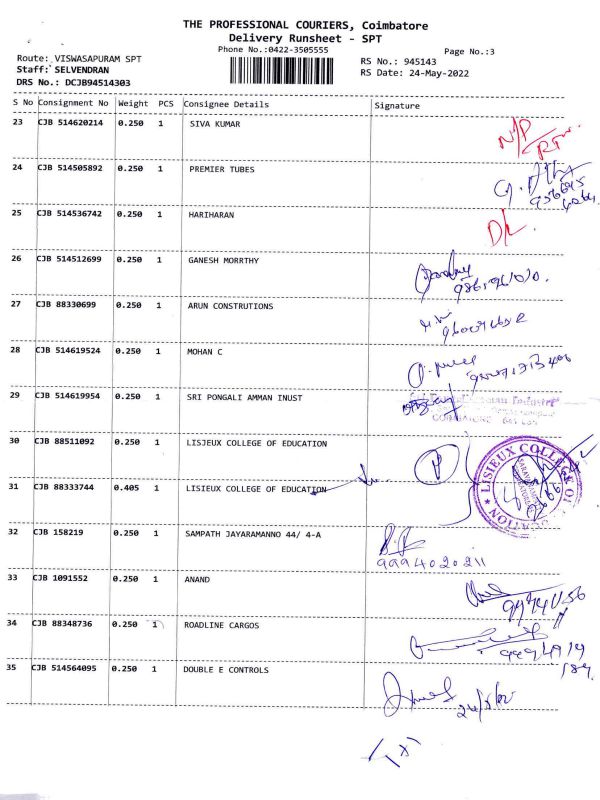 THE PROFESSIONAL COURIERS, Coimbatore
Delivery Runsheet - SPT
Phone No.:0422-3505555
Page No.:3
Route: VISWASAPURAM SPT
RS No.: 945143
Staff: SELVENDRAN
RS Date: 24-May-2022
DRS No.: DCJB94514303
S No Consignment No Weight PCS Consignee Details Signature
23 CJB 514620214 0.250 1 SIVA KUMAR
24 CJB 514505892 0.250 1 PREMIER TUBES
25 CJB 514536742 0.250 1 HARIHARAN D/L
26 CJB 514512699 0.250 1 GANESH MORRTHY
27 CJB 88330699 0.250 1 ARUN CONSTRUTIONS
28 CJB 514619524 0.250 1 MOHAN C
29 CJB 514619954 0.250 1 SRI PONGALI AMMAN INUST
30 CJB 88511092 0.250 1 LISJEUX COLLEGE OF EDUCATION
31 CJB 88333744 0.405 1 LISIEUX COLLEGE OF EDUCATION
LISIEUX COLLEGE OF
32 CJB 158219 0.250 1 SAMPATH JAYARAMANNO 44/ 4-A
9994020211
33 CJB 1091552 0.250 1 ANAND
34 CJB 88348736 0.250 1 ROADLINE CARGOS
35 CJB 514564095 0.250 1 DOUBLE E CONTROLS